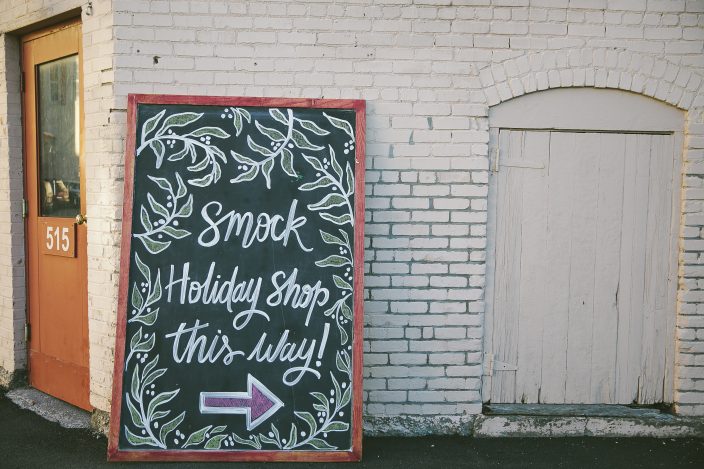 515
Smock
Holiday Shop
this way!